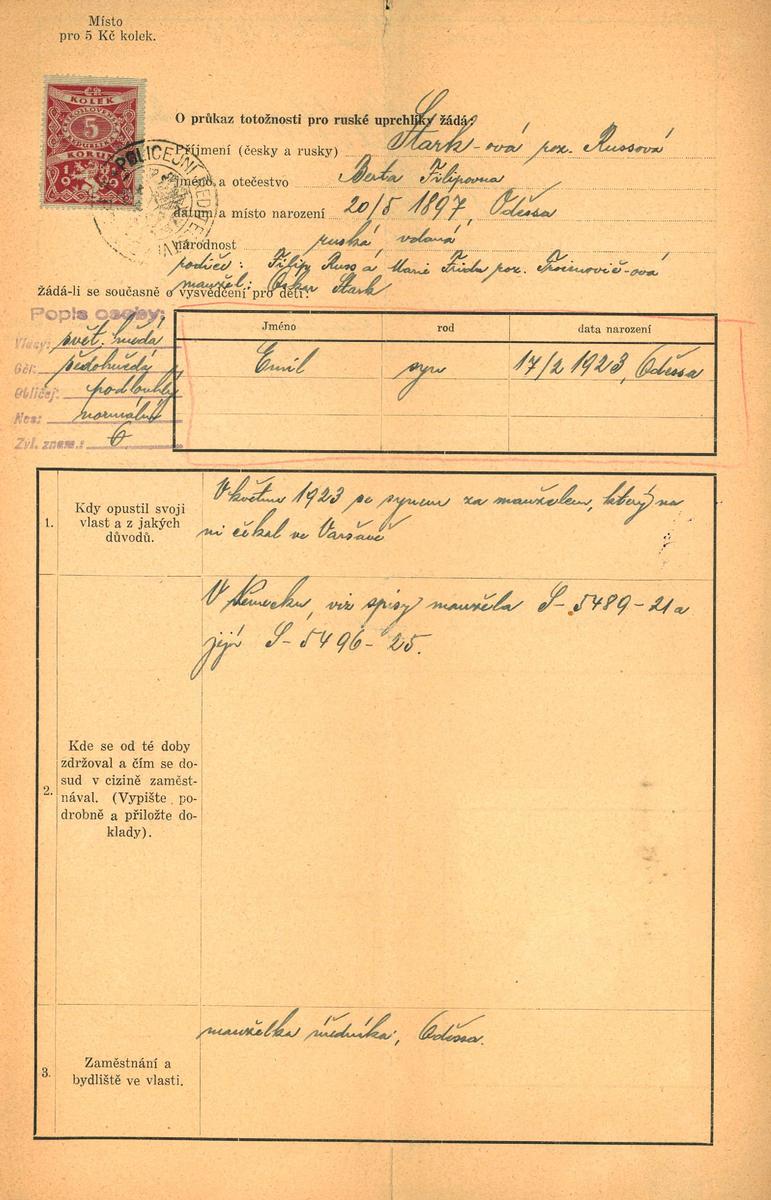 Místo
pro 5 Kč kolek.
ČR
KOLEK
5
KORUN
POLICEJNÍ ŘEDITEL
O průkaz totožnosti pro ruské uprchlíky žádá:
Příjmení (česky a rusky) Stark-ová roz. Russová
jméno a otečestvo Berta Filipovna
datum a místo narození 20/5 1897, Odessa
národnost ruská, vdaná
rodiče: Filip Russ a Marie Frida roz.
manžel: Oskar Stark
Žádá-li se současně o vysvědčení pro děti:
Popis osoby:
Vlasy: svět. hnědá
Oči: šedohnědý
Obličej: podlouhlý
Nos: normální
Zvl. znam.:
Jméno rod data narození
Emil syn 17/2 1923, Odessa
1. Kdy opustil svoji
vlast a z jakých
důvodů.
V květnu 1923 se synem za manželem, který na
ni čekal ve Varšavě
2. Kde se od té doby
zdržoval a čím se do-
sud v cizině zaměst-
nával. (Vypište po-
drobně a přiložte do-
klady).
V Německu, viz spisy manžela S-5489-21 a
její S-5496-25.
3. Zaměstnání a
bydliště ve vlasti.
manželka úředníka, Odessa.